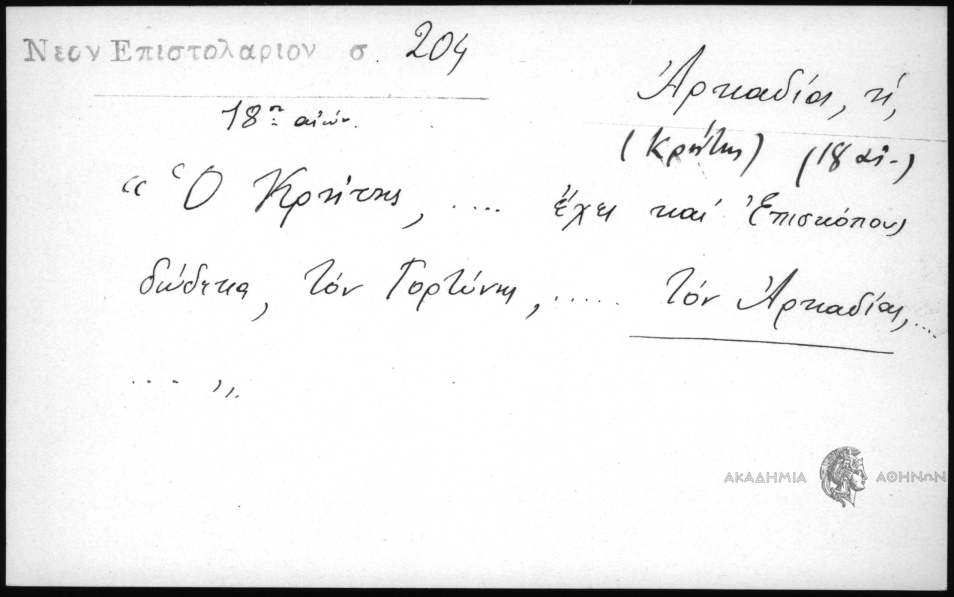 Νεον Επιστολαριον σ. 204
18ος αἰών.
Ἀρκαδίας, ἡ,
(Κρήτης) (18 αἰ.)
“ Ὁ Κρήτης, .... ἔχει καί Ἐπισκόπους
δώδεκα, τόν Γορτύνης, ..... τόν Ἀρκαδίας, ....
.... „
ΑΚΑΔΗΜΙΑ ΑΘΗΝΩΝ